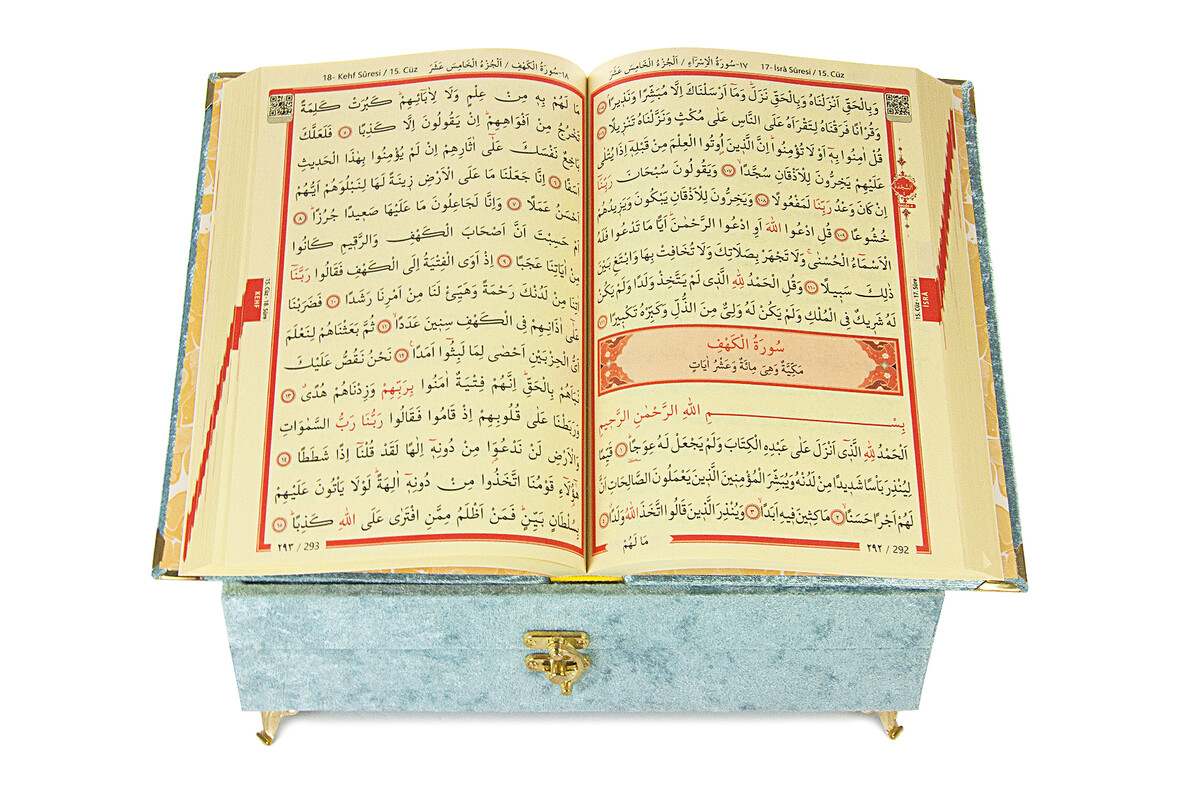 ١٧-سُورَةُ الْاِسْرَاءِ / اَلْجُزْءُ الْخَامِسَ عَشَرَ 17- İsrâ Sûresi / 15. Cüz
وَبِالْحَقِّ اَنْزَلْنَاهُ وَبِالْحَقِّ نَزَلَۜ وَمَٓا اَرْسَلْنَاكَ اِلَّا مُبَشِّرًا وَنَذ۪يرًاۢ ١٠٥
وَقُرْاٰنًا فَرَقْنَاهُ لِتَقْرَاَهُ عَلَى النَّاسِ عَلٰى مُكْثٍ وَنَزَّلْنَاهُ تَنْز۪يلًا ١٠٦
قُلْ اٰمِنُوا بِه۪ٓ اَوْ لَا تُؤْمِنُواۜ اِنَّ الَّذ۪ينَ اُو۫تُوا الْعِلْمَ مِنْ قَبْلِه۪ٓ اِذَا يُتْلٰى
عَلَيْهِمْ يَخِرُّونَ لِلْاَذْقَانِ سُجَّدًاۙ ١٠٧ وَيَقُولُونَ سُبْحَانَ رَبِّنَٓا
اِنْ كَانَ وَعْدُ رَبِّنَا لَمَفْعُولًا ١٠٨ وَيَخِرُّونَ لِلْاَذْقَانِ يَبْكُونَ وَيَز۪يدُهُمْ
خُشُوعًا ١٠٩ قُلِ ادْعُوا اللّٰهَ اَوِ ادْعُوا الرَّحْمٰنَۜ اَيًّا مَا تَدْعُوا فَلَهُ
الْاَسْمَٓاءُ الْحُسْنٰىۚ وَلَا تَجْهَرْ بِصَلَاتِكَ وَلَا تُخَافِتْ بِهَا وَابْتَغِ بَيْنَ
ذٰلِكَ سَب۪يلًا ١١٠ وَقُلِ الْحَمْدُ لِلّٰهِ الَّذ۪ي لَمْ يَتَّخِذْ وَلَدًا وَلَمْ يَكُنْ
لَهُ شَر۪يكٌ فِي الْمُلْكِ وَلَمْ يَكُنْ لَهُ وَلِيٌّ مِنَ الذُّلِّ وَكَبِّرْهُ تَكْب۪يرًا ١١١
سُورَةُ الْكَهْفِ
مَكِّيَّةٌ وَهِىَ مِائَةٌ وَعَشْرُ اٰيَاتٍ
بِسْمِ اللّٰهِ الرَّحْمٰنِ الرَّح۪يمِ
اَلْحَمْدُ لِلّٰهِ الَّذ۪ٓي اَنْزَلَ عَلٰى عَبْدِهِ الْكِتَابَ وَلَمْ يَجْعَلْ لَهُ عِوَجًاۜ ١ قَيِّمًا
لِيُنْذِرَ بَأْسًا شَد۪يدًا مِنْ لَدُنْهُ وَيُبَشِّرَ الْمُؤْمِن۪ينَ الَّذ۪ينَ يَعْمَلُونَ الصَّالِحَاتِ اَنَّ
لَهُمْ اَجْرًا حَسَنًاۙ ٢ مَاكِث۪ينَ ف۪يهِ اَبَدًاۙ ٣ وَيُنْذِرَ الَّذ۪ينَ قَالُوا اتَّخَذَ اللّٰهُ وَلَدًاۗ ٤
مَا لَهُمْ
٢٩٢ / 292
15. Cüz - 17. Sûre
İSRÂ
18- Kehf Sûresi / 15. Cüz ١٨-سُورَةُ الْكَهْفِ / اَلْجُزْءُ الْخَامِسَ عَشَرَ
مَا لَهُمْ بِه۪ مِنْ عِلْمٍ وَلَا لِاٰبَٓائِهِمْۜ كَبُرَتْ كَلِمَةً
تَخْرُجُ مِنْ اَفْوَاهِهِمْۜ اِنْ يَقُولُونَ اِلَّا كَذِبًا ٥ فَلَعَلَّكَ
بَاخِعٌ نَفْسَكَ عَلٰٓى اٰثَارِهِمْ اِنْ لَمْ يُؤْمِنُوا بِهٰذَا الْحَد۪يثِ
اَسَفًا ٦ اِنَّا جَعَلْنَا مَا عَلَى الْاَرْضِ ز۪ينَةً لَهَا لِنَبْلُوَهُمْ اَيُّهُمْ
اَحْسَنُ عَمَلًا ٧ وَاِنَّا لَجَاعِلُونَ مَا عَلَيْهَا صَع۪يدًا جُرُزًاۜ ٨
اَمْ حَسِبْتَ اَنَّ اَصْحَابَ الْكَهْفِ وَالرَّق۪يمِ كَانُوا
مِنْ اٰيَاتِنَا عَجَبًا ٩ اِذْ اَوَى الْفِتْيَةُ اِلَى الْكَهْفِ فَقَالُوا رَبَّنَٓا
اٰتِنَا مِنْ لَدُنْكَ رَحْمَةً وَهَيِّئْ لَنَا مِنْ اَمْرِنَا رَشَدًا ١٠ فَضَرَبْنَا
عَلٰٓى اٰذَانِهِمْ فِي الْكَهْفِ سِن۪ينَ عَدَدًاۙ ١١ ثُمَّ بَعَثْنَاهُمْ لِنَعْلَمَ
اَيُّ الْحِزْبَيْنِ اَحْصٰى لِمَا لَبِثُٓوا اَمَدًا۟ ١٢ نَحْنُ نَقُصُّ عَلَيْكَ
نَبَاَهُمْ بِالْحَقِّۜ اِنَّهُمْ فِتْيَةٌ اٰمَنُوا بِرَبِّهِمْ وَزِدْنَاهُمْ هُدًىۗ ١٣
وَرَبَطْنَا عَلٰى قُلُوبِهِمْ اِذْ قَامُوا فَقَالُوا رَبُّنَا رَبُّ السَّمٰوَاتِ
وَالْاَرْضِ لَنْ نَدْعُوَ۬ا مِنْ دُونِه۪ٓ اِلٰهًا لَقَدْ قُلْنَٓا اِذًا شَطَطًا ١٤
هٰٓؤُ۬لَٓاءِ قَوْمُنَا اتَّخَذُوا مِنْ دُونِه۪ٓ اٰلِهَةًۜ لَوْلَا يَأْتُونَ عَلَيْهِمْ
بِسُلْطَانٍ بَيِّنٍۜ فَمَنْ اَظْلَمُ مِمَّنِ افْتَرٰى عَلَى اللّٰهِ كَذِبًاۜ ١٥
٢٩٣ / 293
15. Cüz - 18. Sûre
KEHF